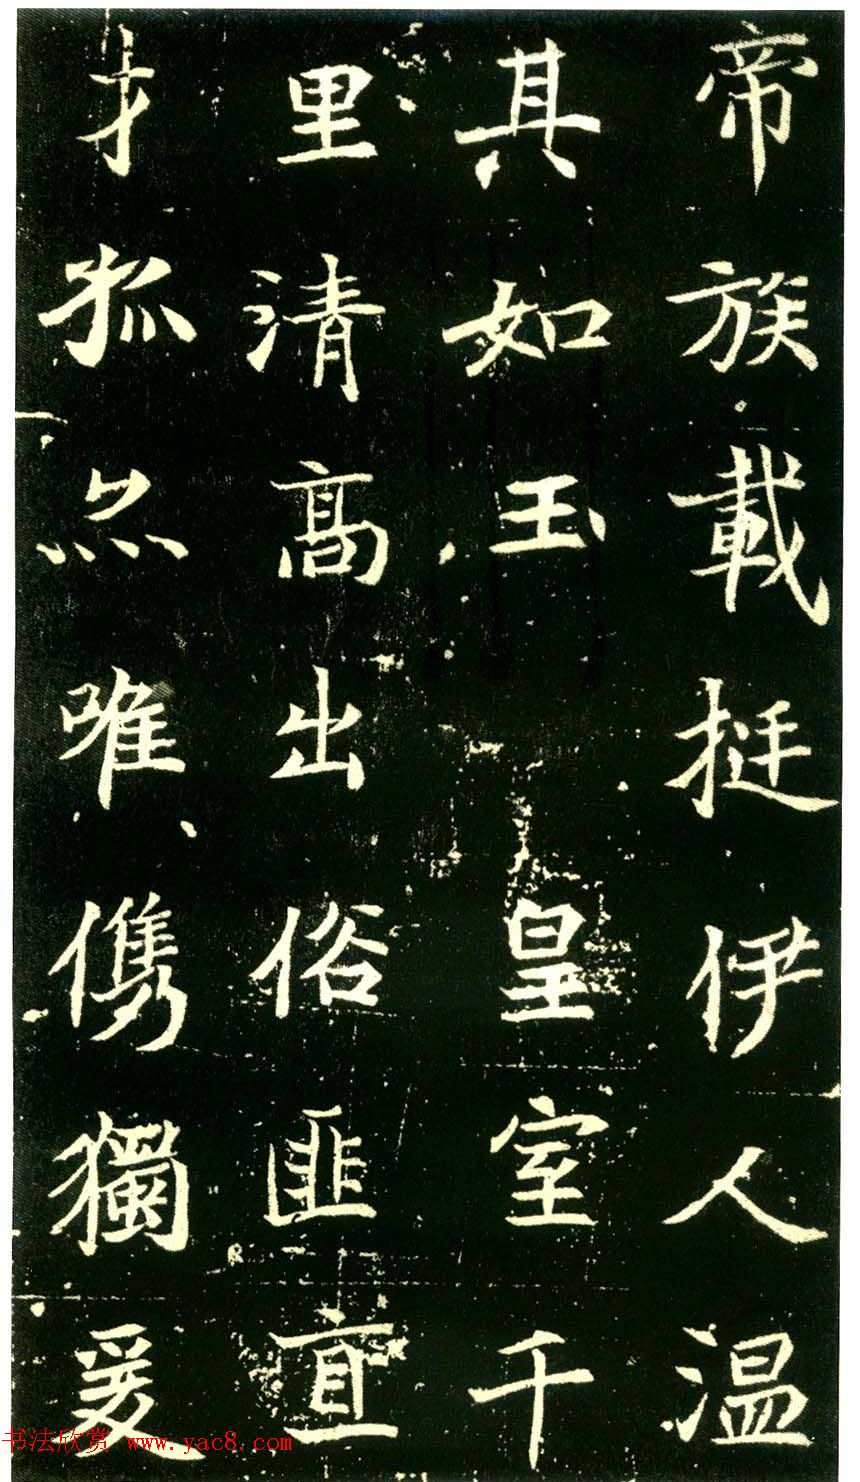 帝族載挺伊人温
其如玉 皇室千
里清高出俗匪直
才孤亦唯儁獨爰
书法欣赏 www.yac8.com